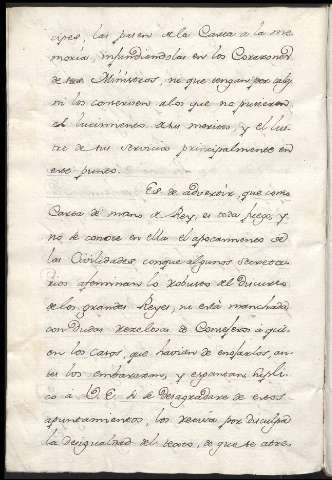 cipes, las pasen de la Carta a la me
moria, infundiendolas en los Corazones
de sus Ministros, no que tengan por
ni los contenten a los que no
el lucimiento de sus meritos, y el lus
tre de tus servicios principalmente en
este punto.
Es de advertir, que como
Carta de mano de Rey, es toda fuego, y
no se conoce en ella el apocamiento de
las Civilidades, conque algunos Secreta
rios afeminan lo robusto del Discurso
de los grandes Reyes, ni está manchada
con Dudas rezelosas de Consejeros á qui
en los Casos, que havian de enseñarlos, an
tes los embarazan, y espantan: supli
co a V. E. si se desagradare de estos
apuntamientos, los reciva por disculpa
la desigualdad del texto, de que se atre